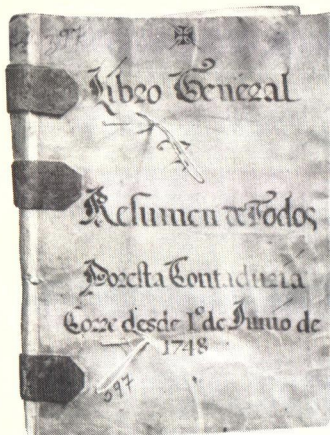 397
Libro General
Resumen de Todos
Por esta Contaduria
Corre desde 1º de Junio de
1748
397